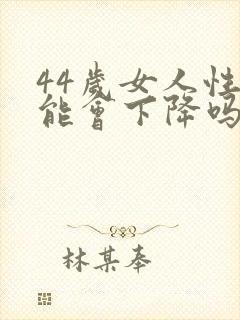 44歲女人性
能會下降吗
林某奉